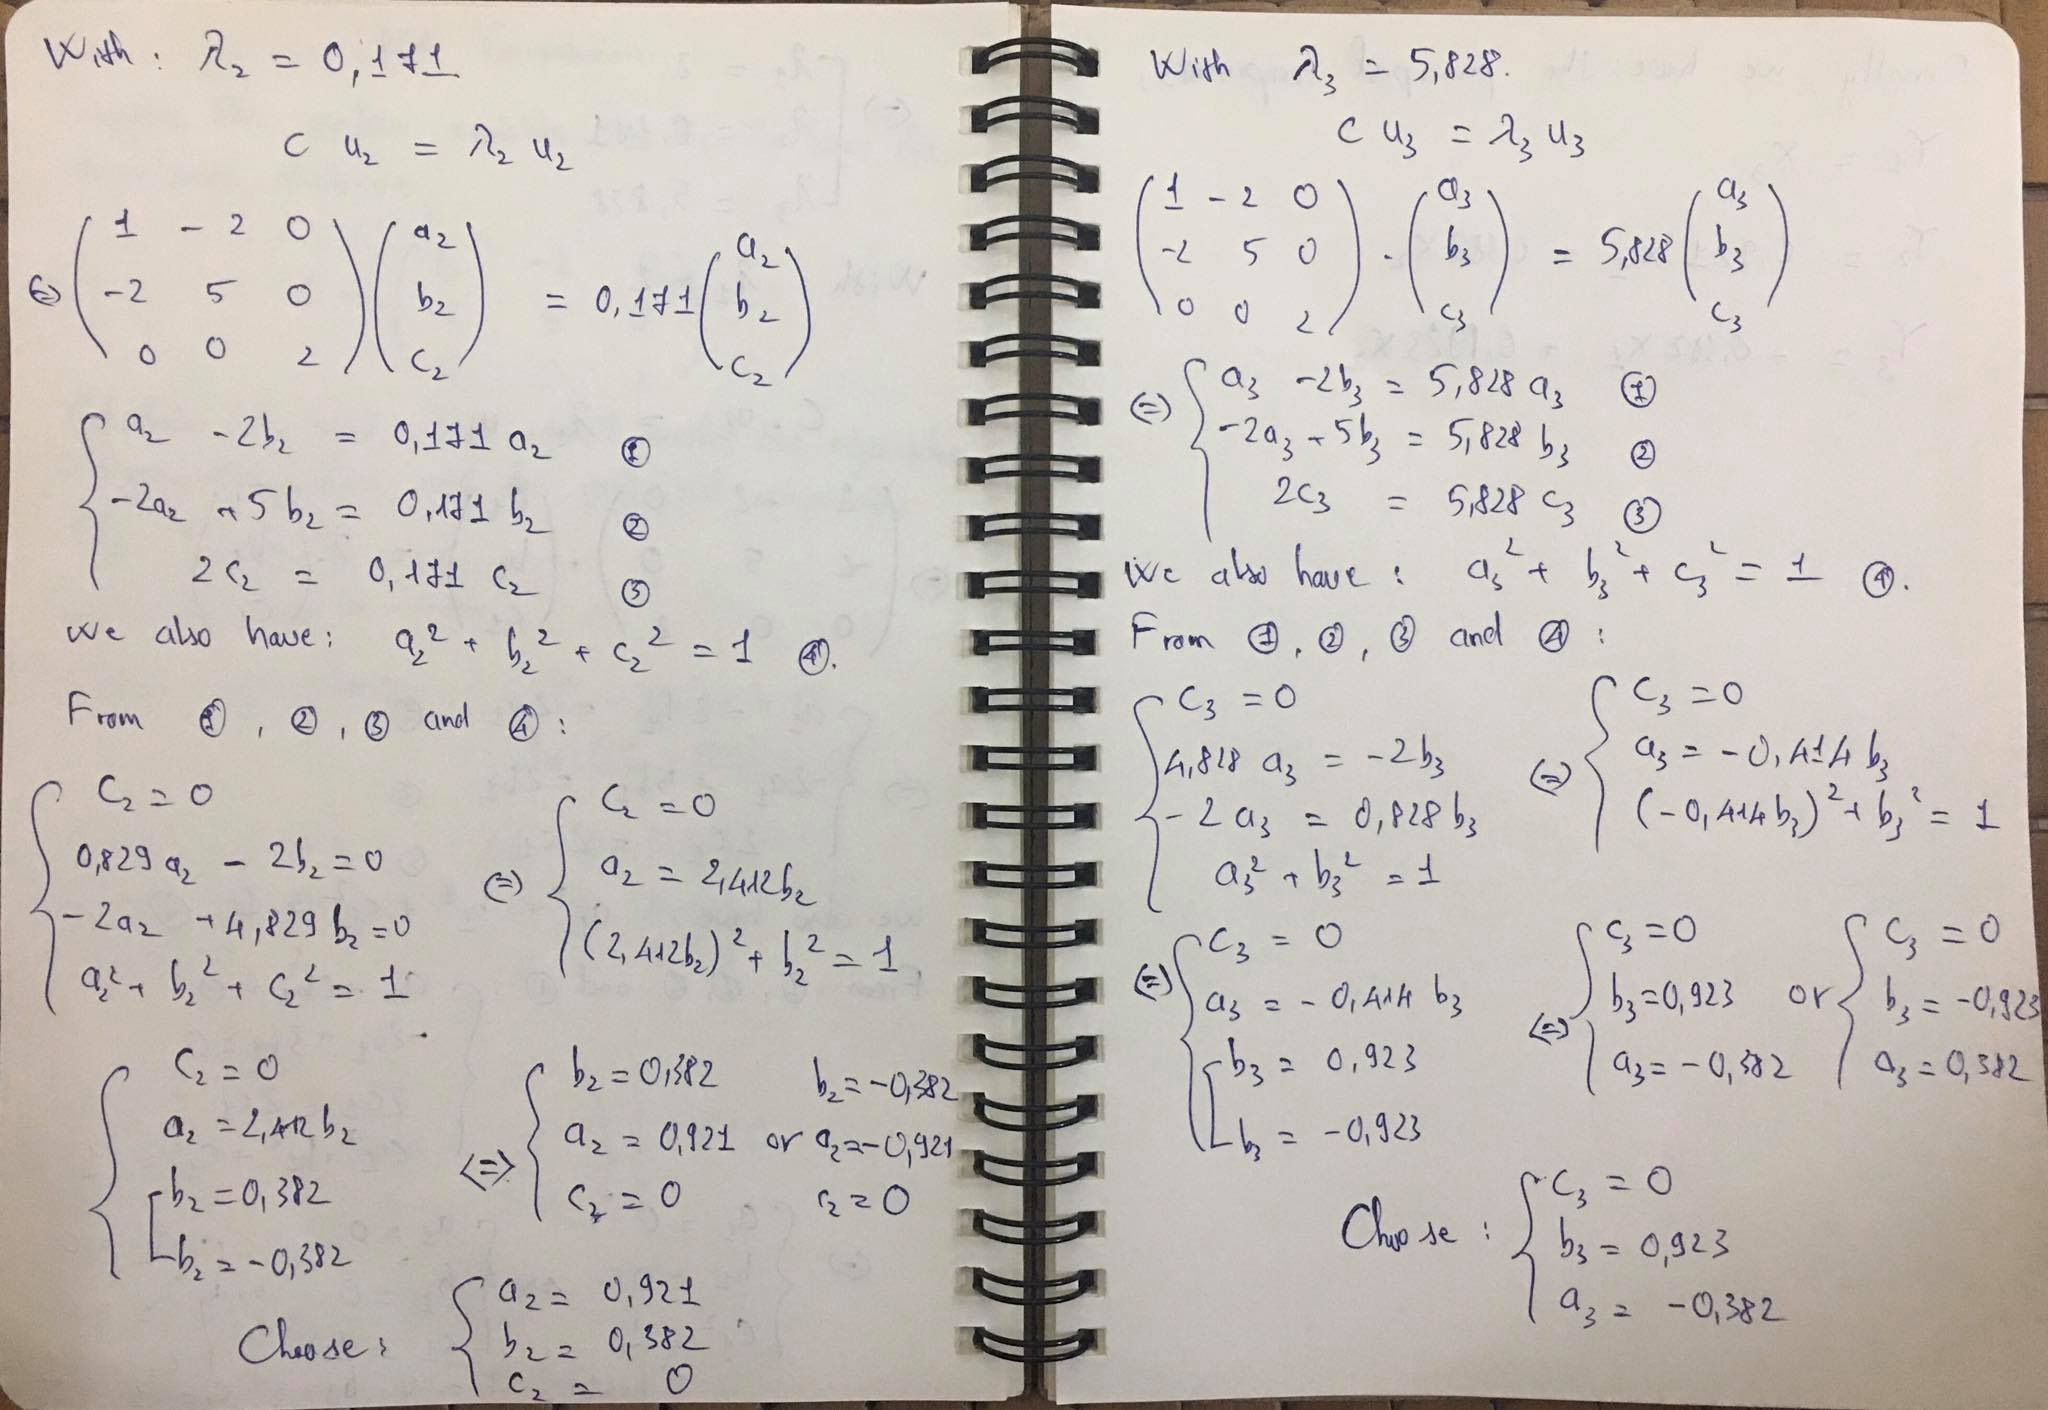 With : λ₂ = 0,171
C u₂ = λ₂ u₂
⇔ ( 1 -2 0 ) ( a₂ ) = 0,171 ( a₂ )
( -2 5 0 ) ( b₂ ) ( b₂ )
( 0 0 2 ) ( c₂ ) ( c₂ )
{ a₂ - 2b₂ = 0,171 a₂ ①
-2a₂ + 5b₂ = 0,171 b₂ ②
2c₂ = 0,171 c₂ ③
We also have : a₂² + b₂² + c₂² = 1 ④.
From ①, ②, ③ and ④ :
{ c₂ = 0
0,829 a₂ - 2b₂ = 0
-2a₂ + 4,829 b₂ = 0
a₂² + b₂² + c₂² = 1
⇔ { c₂ = 0
a₂ = 2,412b₂
(2,412b₂)² + b₂² = 1
{ c₂ = 0
a₂ = 2,412 b₂
[ b₂ = 0,382
b₂ = -0,382
⇔ { b₂ = 0,382 b₂ = -0,382
a₂ = 0,921 or a₂ = -0,921
c₂ = 0 c₂ = 0
Choose : { a₂ = 0,921
b₂ = 0,382
c₂ = 0
With λ₃ = 5,828.
C u₃ = λ₃ u₃
( 1 -2 0 ) . ( a₃ ) = 5,828 ( a₃ )
( -2 5 0 ) ( b₃ ) ( b₃ )
( 0 0 2 ) ( c₃ ) ( c₃ )
⇔ { a₃ - 2b₃ = 5,828 a₃ ①
-2a₃ + 5b₃ = 5,828 b₃ ②
2c₃ = 5,828 c₃ ③
We also have : a₃² + b₃² + c₃² = 1 ④.
From ①, ②, ③ and ④ :
{ c₃ = 0
4,828 a₃ = -2b₃
-2a₃ = 0,828 b₃
a₃² + b₃² = 1
⇔ { c₃ = 0
a₃ = -0,414 b₃
(-0,414b₃)² + b₃² = 1
⇔ { c₃ = 0
a₃ = -0,414 b₃
[ b₃ = 0,923
b₃ = -0,923
⇔ { c₃ = 0 { c₃ = 0
b₃ = 0,923 or b₃ = -0,923
a₃ = -0,382 a₃ = 0,382
Choose : { c₃ = 0
b₃ = 0,923
a₃ = -0,382